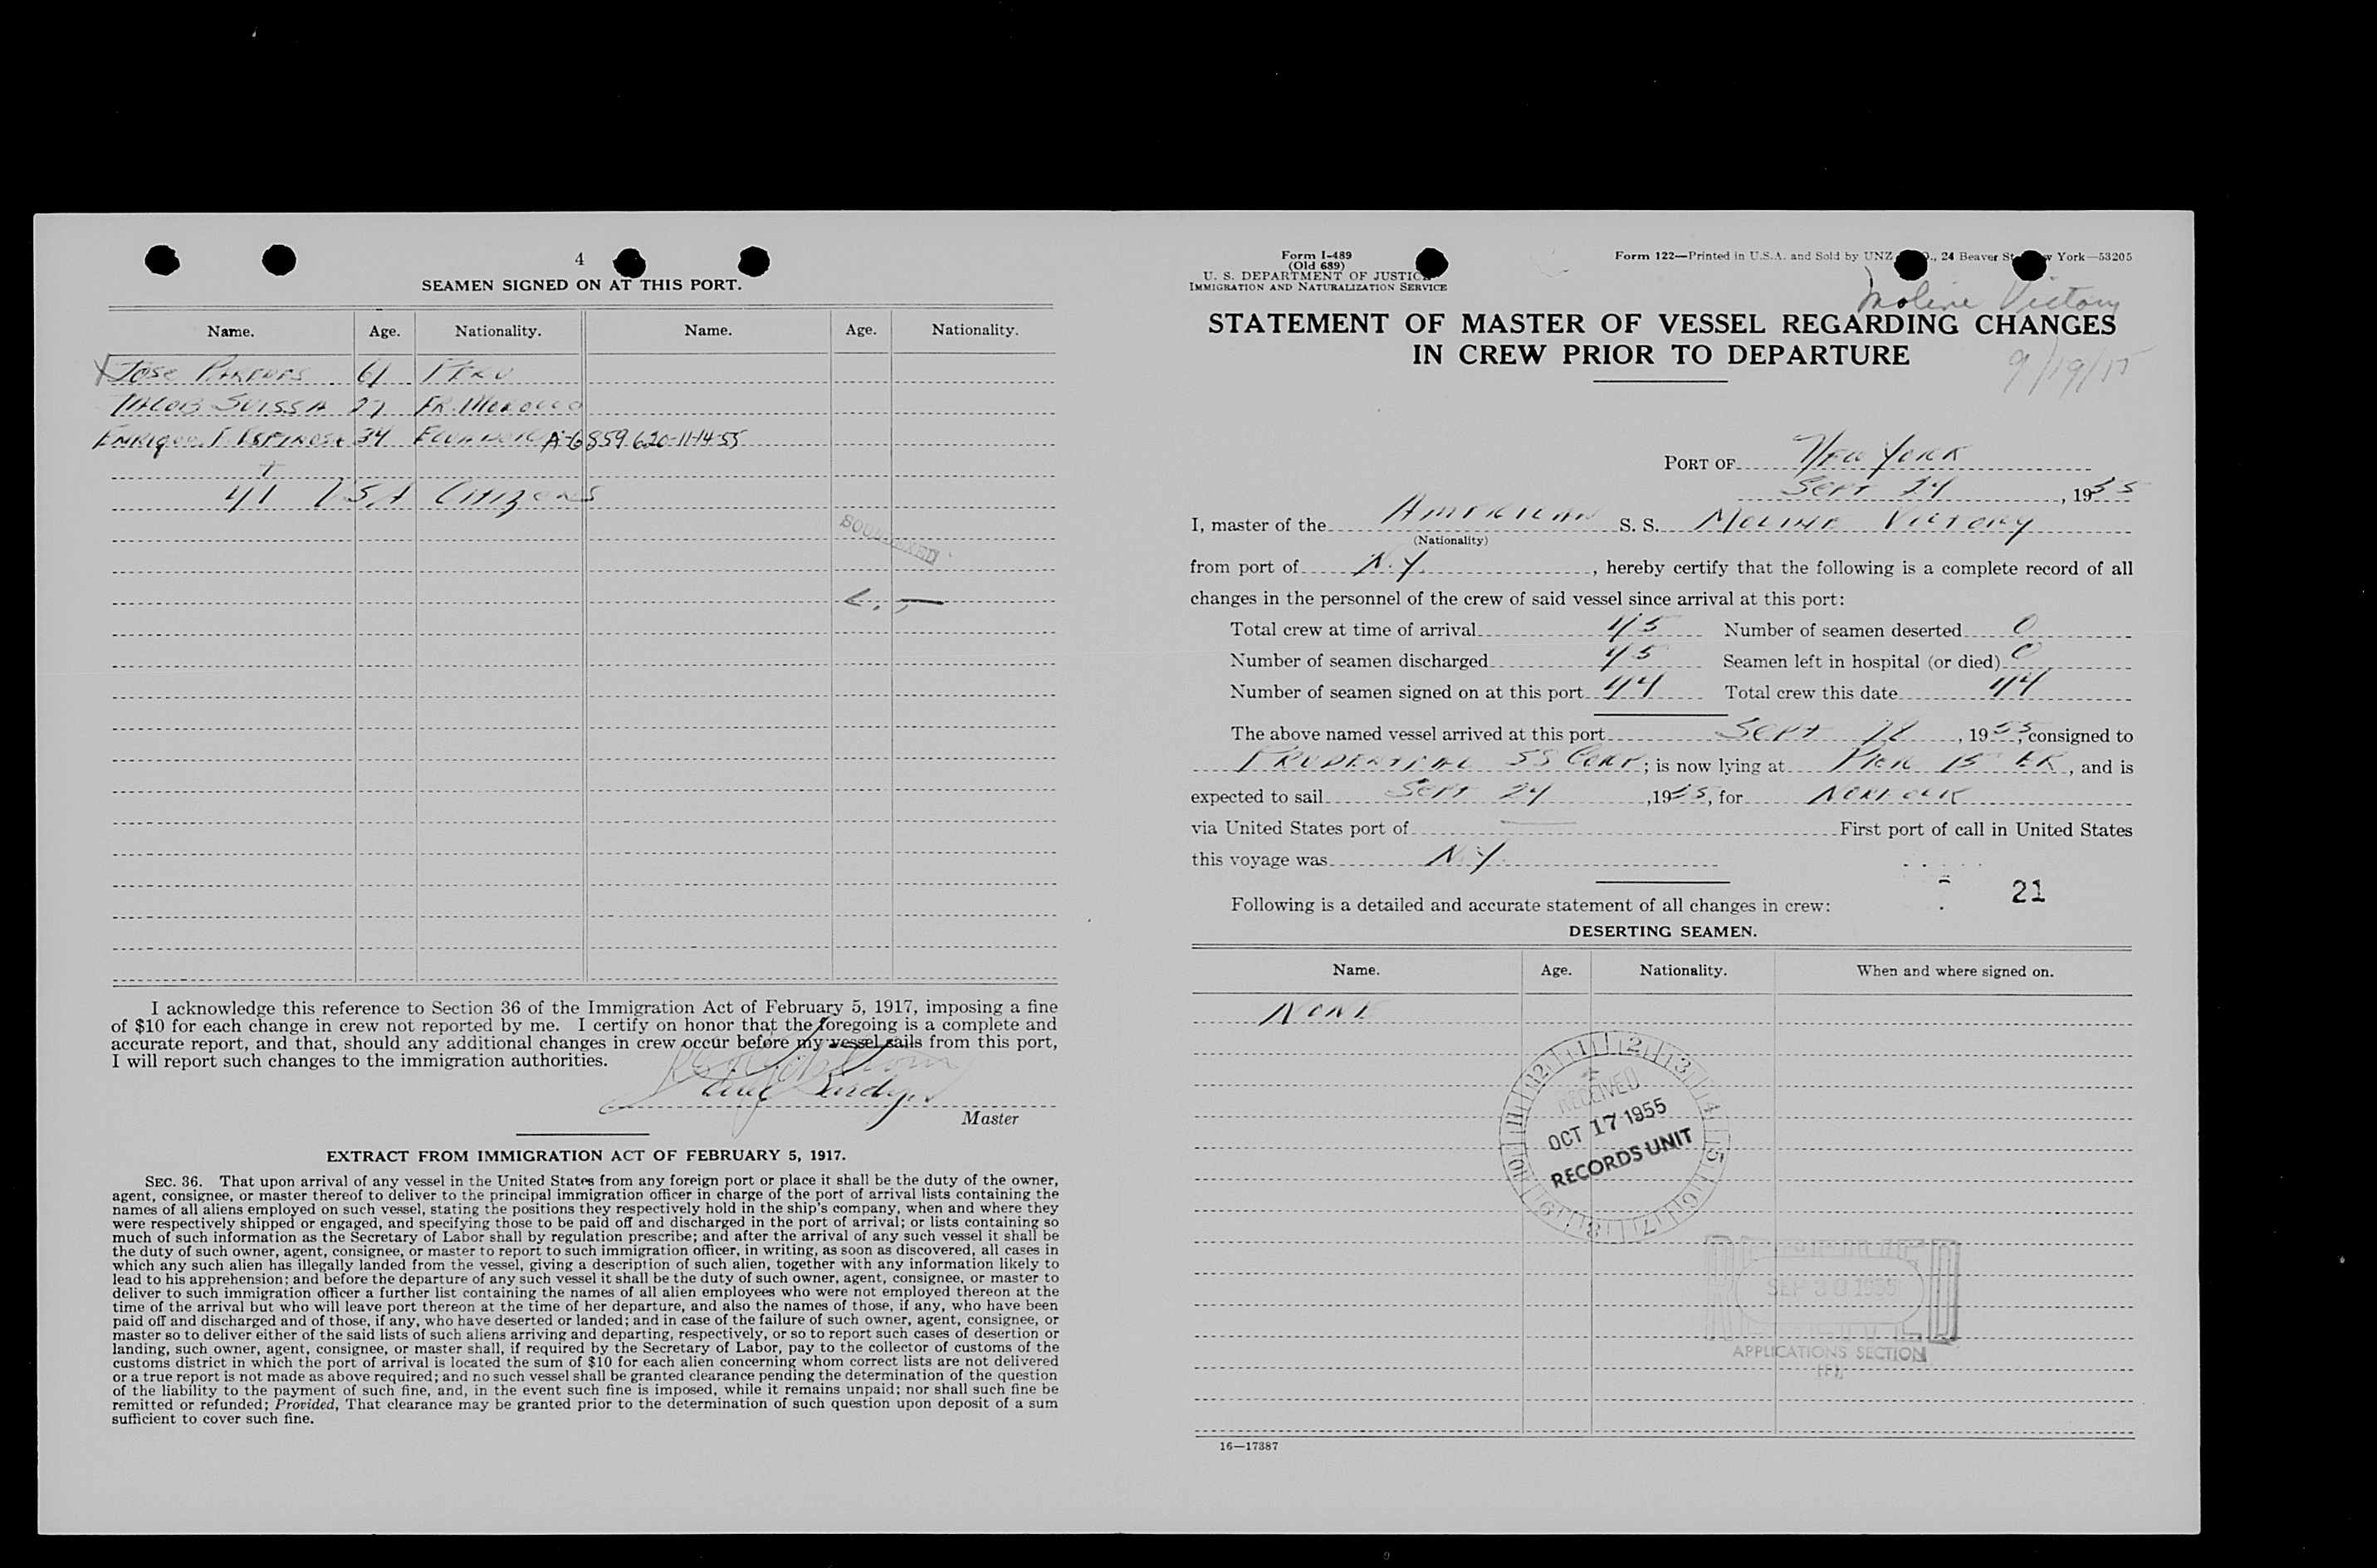 4
SEAMEN SIGNED ON AT THIS PORT.
Name. Age. Nationality. Name. Age. Nationality.
Jose 61 Peru
Jacob Suissa 27 Fr. Morocco
Enrique Espinosa 34 Ecuador A-6 859 620-11-14-55
+
41 USA Citizens
I acknowledge this reference to Section 36 of the Immigration Act of February 5, 1917, imposing a fine
of $10 for each change in crew not reported by me. I certify on honor that the foregoing is a complete and
accurate report, and that, should any additional changes in crew occur before my vessel sails from this port,
I will report such changes to the immigration authorities.
Master
EXTRACT FROM IMMIGRATION ACT OF FEBRUARY 5, 1917.
SEC. 36. That upon arrival of any vessel in the United States from any foreign port or place it shall be the duty of the owner,
agent, consignee, or master thereof to deliver to the principal immigration officer in charge of the port of arrival lists containing the
names of all aliens employed on such vessel, stating the positions they respectively hold in the ship's company, when and where they
were respectively shipped or engaged, and specifying those to be paid off and discharged in the port of arrival; or lists containing so
much of such information as the Secretary of Labor shall by regulation prescribe; and after the arrival of any such vessel it shall be
the duty of such owner, agent, consignee, or master to report to such immigration officer, in writing, as soon as discovered, all cases in
which any such alien has illegally landed from the vessel, giving a description of such alien, together with any information likely to
lead to his apprehension; and before the departure of any such vessel it shall be the duty of such owner, agent, consignee, or master to
deliver to such immigration officer a further list containing the names of all alien employees who were not employed thereon at the
time of the arrival but who will leave port thereon at the time of her departure, and also the names of those, if any, who have been
paid off and discharged and of those, if any, who have deserted or landed; and in case of the failure of such owner, agent, consignee, or
master so to deliver either of the said lists of such aliens arriving and departing, respectively, or so to report such cases of desertion or
landing, such owner, agent, consignee, or master shall, if required by the Secretary of Labor, pay to the collector of customs of the
customs district in which the port of arrival is located the sum of $10 for each alien concerning whom correct lists are not delivered
or a true report is not made as above required; and no such vessel shall be granted clearance pending the determination of the question
of the liability to the payment of such fine, and, in the event such fine is imposed, while it remains unpaid; nor shall such fine be
remitted or refunded; Provided, That clearance may be granted prior to the determination of such question upon deposit of a sum
sufficient to cover such fine.
Form I-489
(Old 689)
U. S. DEPARTMENT OF JUSTICE
IMMIGRATION AND NATURALIZATION SERVICE
Form 122—Printed in U.S.A. and Sold by UNZ 24 Beaver York—53205
Moline Victory
STATEMENT OF MASTER OF VESSEL REGARDING CHANGES
IN CREW PRIOR TO DEPARTURE
9/19/55
PORT OF New York
Sept 24, 1955
I, master of the American S. S. Moline Victory
(Nationality)
from port of N.Y., hereby certify that the following is a complete record of all
changes in the personnel of the crew of said vessel since arrival at this port:
Total crew at time of arrival 45 Number of seamen deserted 0
Number of seamen discharged 45 Seamen left in hospital (or died) 0
Number of seamen signed on at this port 44 Total crew this date 44
The above named vessel arrived at this port Sept 18, 1955, consigned to
Prudential SS Corp; is now lying at Pier 15 ER, and is
expected to sail Sept 24, 1955, for Norfolk
via United States port of — First port of call in United States
this voyage was N.Y.
21
Following is a detailed and accurate statement of all changes in crew:
DESERTING SEAMEN.
Name. Age. Nationality. When and where signed on.
None
12 1 2 3 4 5 6 7 8 9 10 11
RECEIVED
OCT 17 1955
RECORDS UNIT
RECEIVED
SEP 30 1955
APPLICATIONS SECTION
16—17387